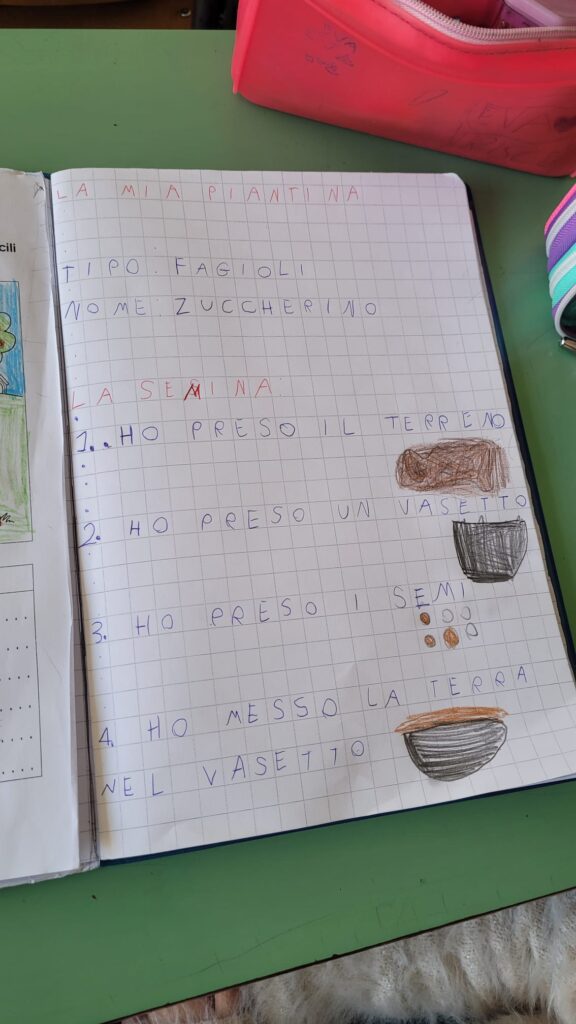 LA MIA PIANTINA
TIPO: FAGIOLI
NOME: ZUCCHERINO
LA SEMINA:
1.. HO PRESO IL TERRENO
2. HO PRESO UN VASETTO
3. HO PRESO I SEMI
4. HO MESSO LA TERRA
NEL VASETTO
cili
EVA